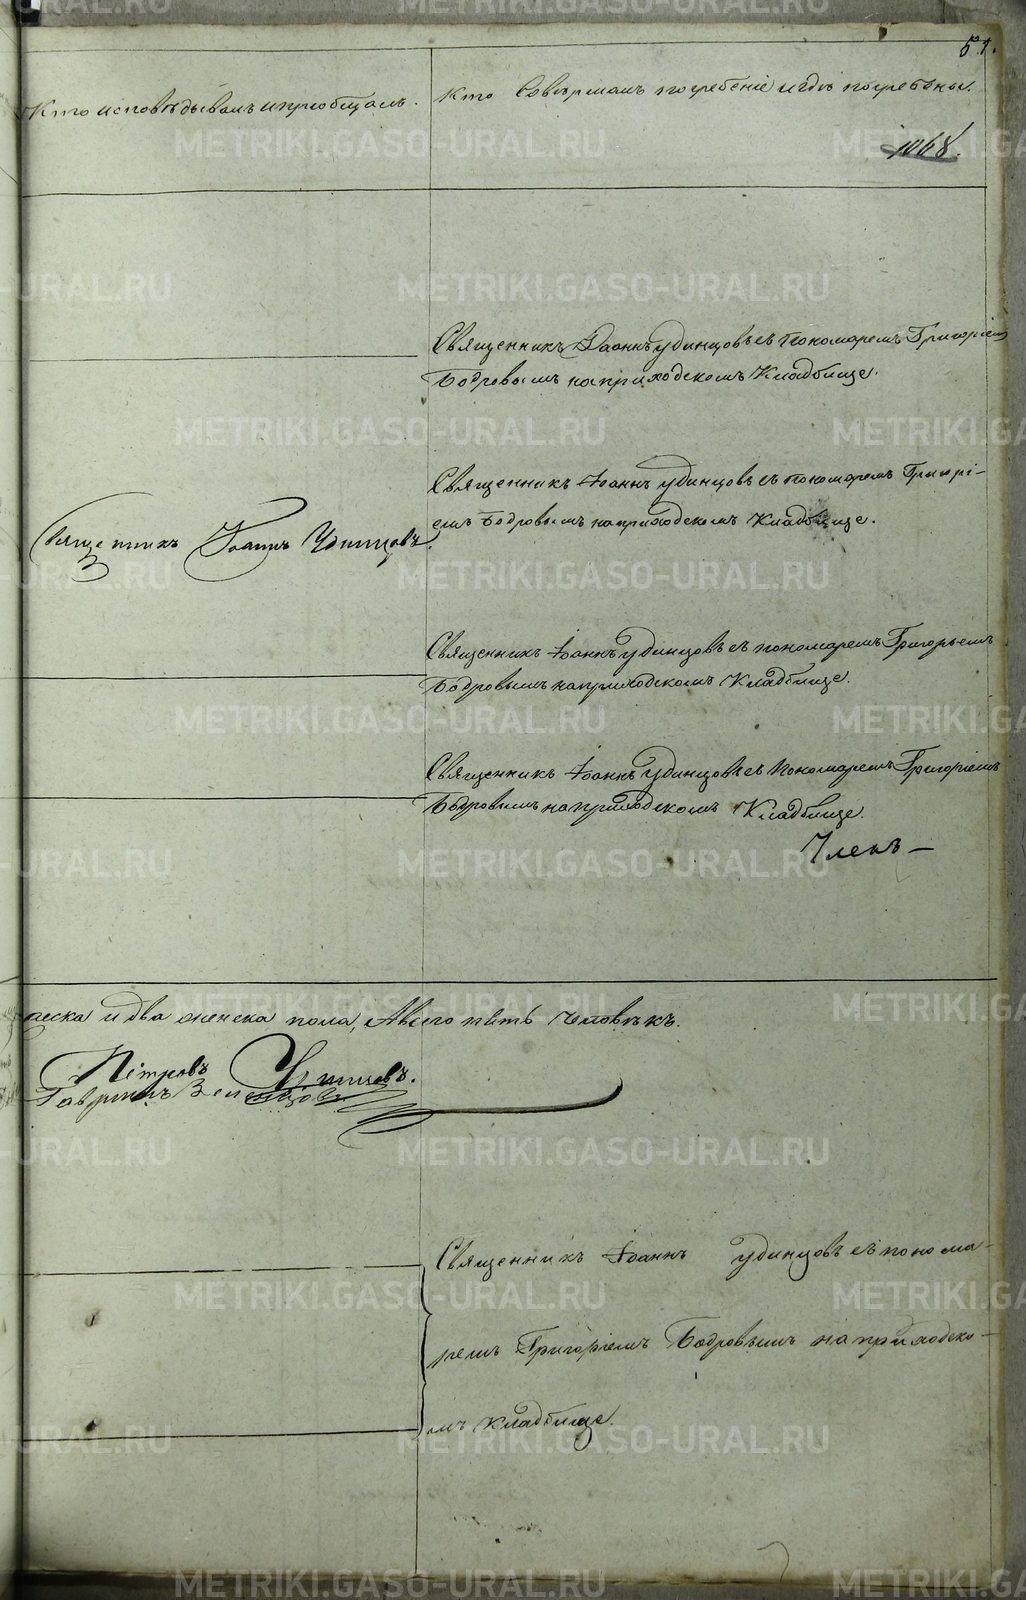 51.
Кто исповѣдывалъ и приобщалъ.
Кто Совершалъ погребеніе и гдѣ погребены.
1068.
Священникъ Іоаннъ Удинцовъ съ пономаремъ Григоріемъ
Бодровымъ на приходскомъ Кладбище.
Священникъ Іоаннъ Удинцовъ съ пономаремъ Григорі-
емъ Бодровымъ на приходскомъ Кладбище.
Священникъ Іоаннъ Удинцовъ.
Священникъ Іоаннъ Удинцовъ съ пономаремъ Григорьемъ
Бодровымъ на приходскомъ Кладбище.
Священникъ Іоаннъ Удинцовъ съ Пономаремъ Григоріемъ
Бодровымъ на приходскомъ Кладбище.
Членъ —
песка и два женска пола, А всего пять человѣкъ.
Петровъ
Гаврилъ
Священникъ Іоаннъ Удинцовъ съ понома-
ремъ Григоріемъ Бодровымъ на приходско-
мъ кладбище.
METRIKI.GASO-URAL.RU